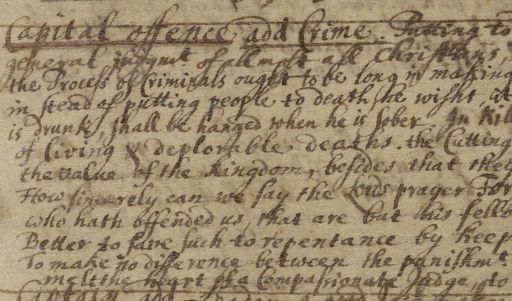 Capital offence add Crime. Putting to
general judgmt of allmost all Christians,
the Process of Criminals ought to be long in making
in stead of putting people to death, he wisht,
is drunk, shall be hanged when he is sober. In
of living & deplorable deaths. the Cutting
the value of the Kingdom, besides that they
How sincerely can we say the Lords prayer For
who hath offended us, that are but his fello
Better to save such to repentance by keep
To make no difference between the punishmt
melt the heart of a Compassionate Judge, to